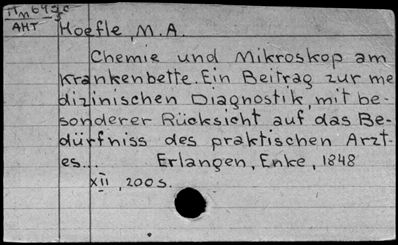 AHT
Hoefle, M.A.
Chemie und Mikroskop am
Krankenbette. Ein Beitrag zur me
dizinischen Diagnostik, mit be-
sonderer Rücksicht auf das Be-
dürfniss des praktischen Arzt-
es... Erlangen, Enke, 1848
XII, 200 s.